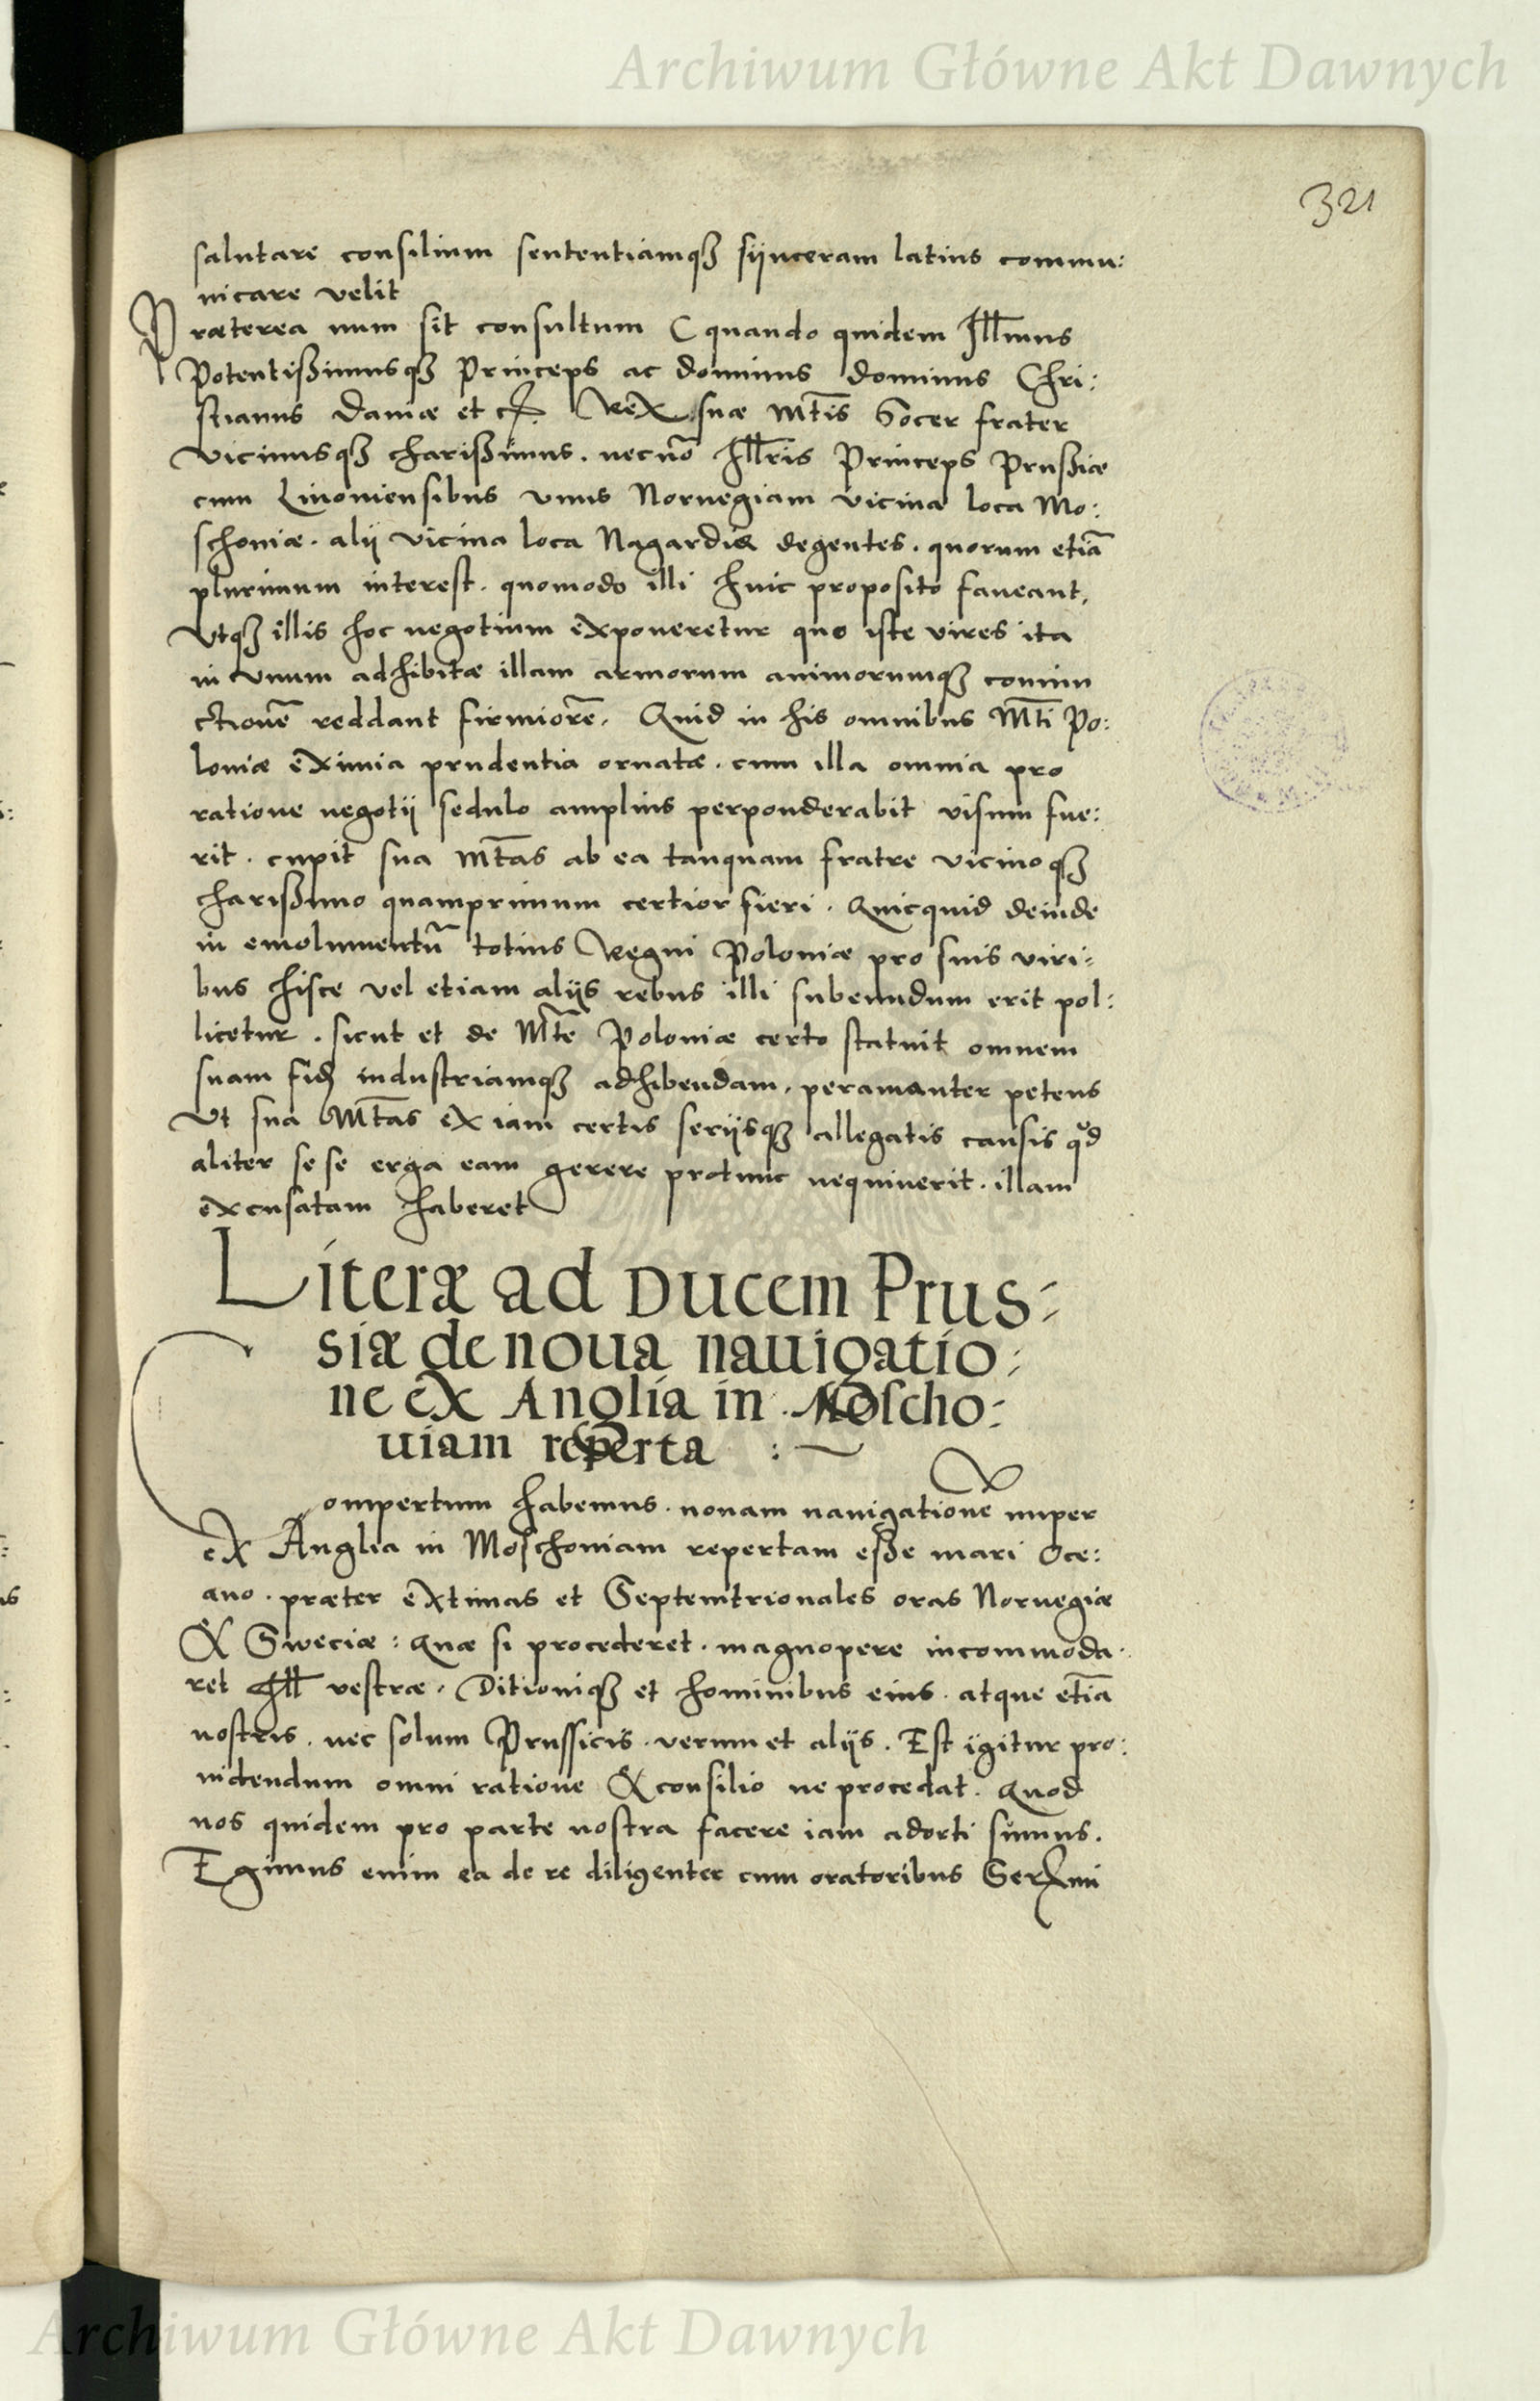 Archiwum Główne Akt Dawnych
321
salutare consilium sententiamqꝫ sijnceram latius commu:
nicare velit
Præterea num sit consultum (quando quidem Illmus
Potentißimusqꝫ Princeps ac dominus dominus Chri:
stianus Daniæ et cꝭ. Rex suæ Mtis Socer frater
vicinusqꝫ charißimus. necnō Illris Princeps Prußiæ
cum Liuoniensibus vnus Noruegiam vicina loca Mo:
schouiæ. alij vicina loca Nagardiæ degentes. quorum etiā
plurimum interest. quomodo illi huic proposito faueant,
Vtqꝫ illis hoc negotium exponeretur quo iste vires ita
in vnum adhibitæ illam armorum animorumqꝫ coniun
ctionē reddant firmiorē. Quid in his omnibus Mti Po:
loniæ eximia prudentia ornatæ. cum illa omnia pro
ratione negotij sedulo amplius perponderabit visum fue:
rit. cupit sua Mtas ab ea tanquam fratre vicinoqꝫ
charißimo quamprimum certior fieri. Quicquid deinde
in emolumentū totius Regni Poloniæ pro suis viri:
bus hisce vel etiam alijs rebus illi subeundum erit pol:
licetur. sicut et de Mte Poloniæ certo statuit omnem
suam fidē industriamqꝫ adhibendam, peramanter petens
Vt sua Mtas ex iam certis serijsqꝫ allegatis causis qd
aliter se se erga eam gerere protunc nequiuerit. illam
excusatam haberet
Literæ ad Ducem Prus:
siæ de noua nauigatio:
ne ex Anglia in Moscho:
uiam reperta :~
Compertum habemus. nouam nauigationē nuper
ex Anglia in Moschouiam repertam eße mari Oce:
ano. præter extimas et Septemtrionales oras Noruegiæ
& Sweciæ: Quæ si procederet. magnopere incommoda:
ret Ill vestræ. Ditioniqꝫ et hominibus eius. atque etiā
nostris. nec solum Prussicis. verum et alijs. Est igitur pro:
uidendum omni ratione & consilio ne procedat. Quod
nos quidem pro parte nostra facere iam adorti sumus.
Egimus enim ea de re diligenter cum oratoribus Sermi
Archiwum Główne Akt Dawnych